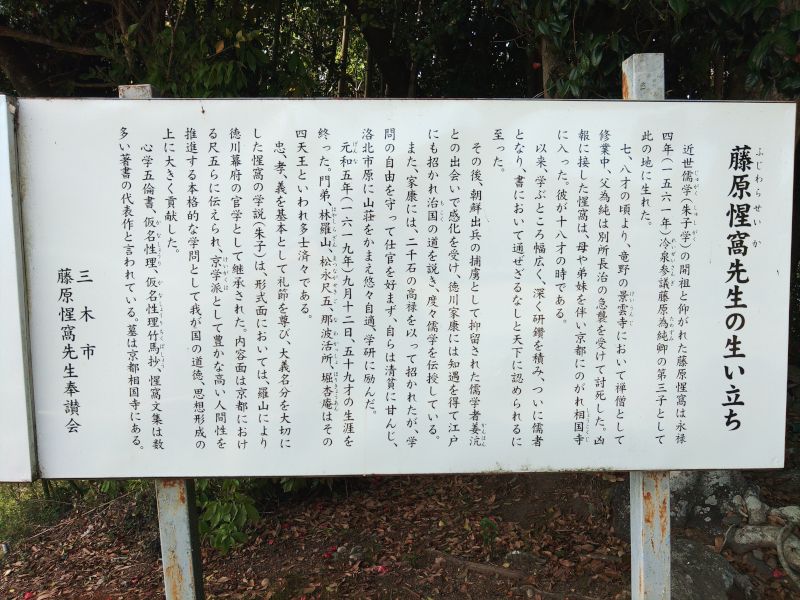 藤原惺窩先生の生い立ち
近世儒学(朱子学)の開祖と仰がれた藤原惺窩は永禄
四年(一五六一年)冷泉参議藤原為純卿の第三子として
此の地に生れた。
七、八才の頃より、竜野の景雲寺において禅僧として
修業中、父為純は別所長治の急襲を受けて討死した。凶
報に接した惺窩は、母や弟妹を伴い京都にのがれ相国寺
に入った。彼が十八才の時である。
以来、学ぶところ幅広く、深く研鑽を積み、ついに儒者
となり、書において通ぜざるなしと天下に認められるに
至った。
その後、朝鮮出兵の捕虜として抑留された儒学者姜沆
との出会いで感化を受け、徳川家康には知遇を得て江戸
にも招かれ治国の道を説き、度々儒学を伝授している。
また、家康には、二千石の高禄を以って招かれたが、学
問の自由を守って仕官を好まず、自らは清貧に甘んじ、
洛北市原に山荘をかまえ悠々自適、学研に励んだ。
元和五年(一六一九年)九月十二日、五十九才の生涯を
終った。門弟、林羅山、松永尺五、那波活所、堀杏庵はその
四天王といわれ多士済々である。
忠、孝、義を基本として礼節を尊び、大義名分を大切に
した惺窩の学説(朱子)は、形式面においては、羅山により
徳川幕府の官学として継承された。内容面は京都におけ
る尺五らに伝えられ、京学派として豊かな高い人間性を
推進する本格的な学問として我が国の道徳、思想形成の
上に大きく貢献した。
心学五倫書、仮名性理、仮名性理竹馬抄、惺窩文集は数
多い著書の代表作と言われている。墓は京都相国寺にある。
三木市
藤原惺窩先生奉讃会